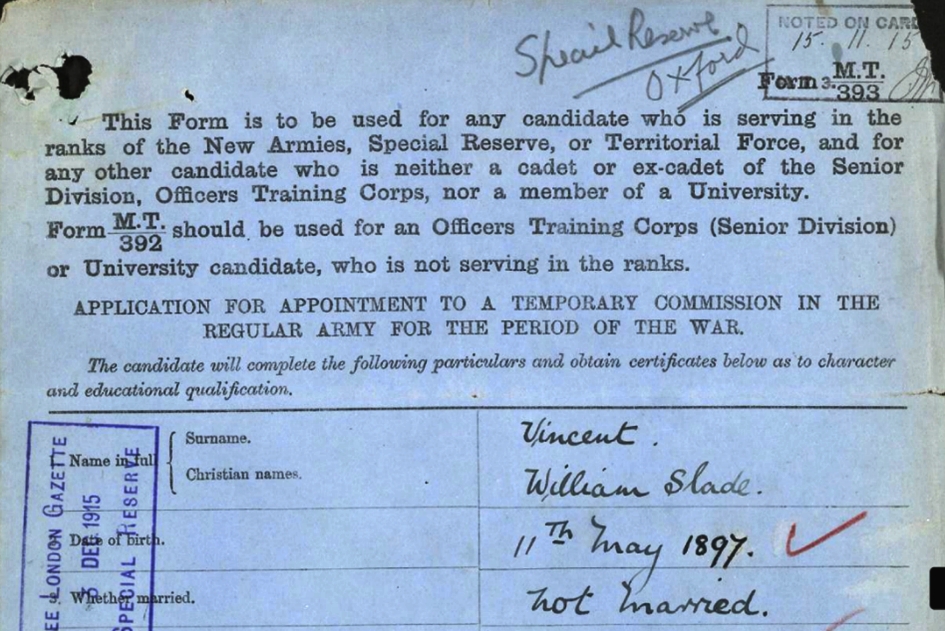 Special Reserve
Oxford
NOTED ON CARD
15. 11. 15
Form M.T. 393
This Form is to be used for any candidate who is serving in the
ranks of the New Armies, Special Reserve, or Territorial Force, and for
any other candidate who is neither a cadet or ex-cadet of the Senior
Division, Officers Training Corps, nor a member of a University.
Form M.T. 392 should be used for an Officers Training Corps (Senior Division)
or University candidate, who is not serving in the ranks.
APPLICATION FOR APPOINTMENT TO A TEMPORARY COMMISSION IN THE
REGULAR ARMY FOR THE PERIOD OF THE WAR.
The candidate will complete the following particulars and obtain certificates below as to character
and educational qualification.
Name in full
Surname. Vincent.
Christian names. William Slade.
Date of birth. 11th May 1897.
Whether married. not married.
LONDON GAZETTE
DEC 1915
SPECIAL RESERVE